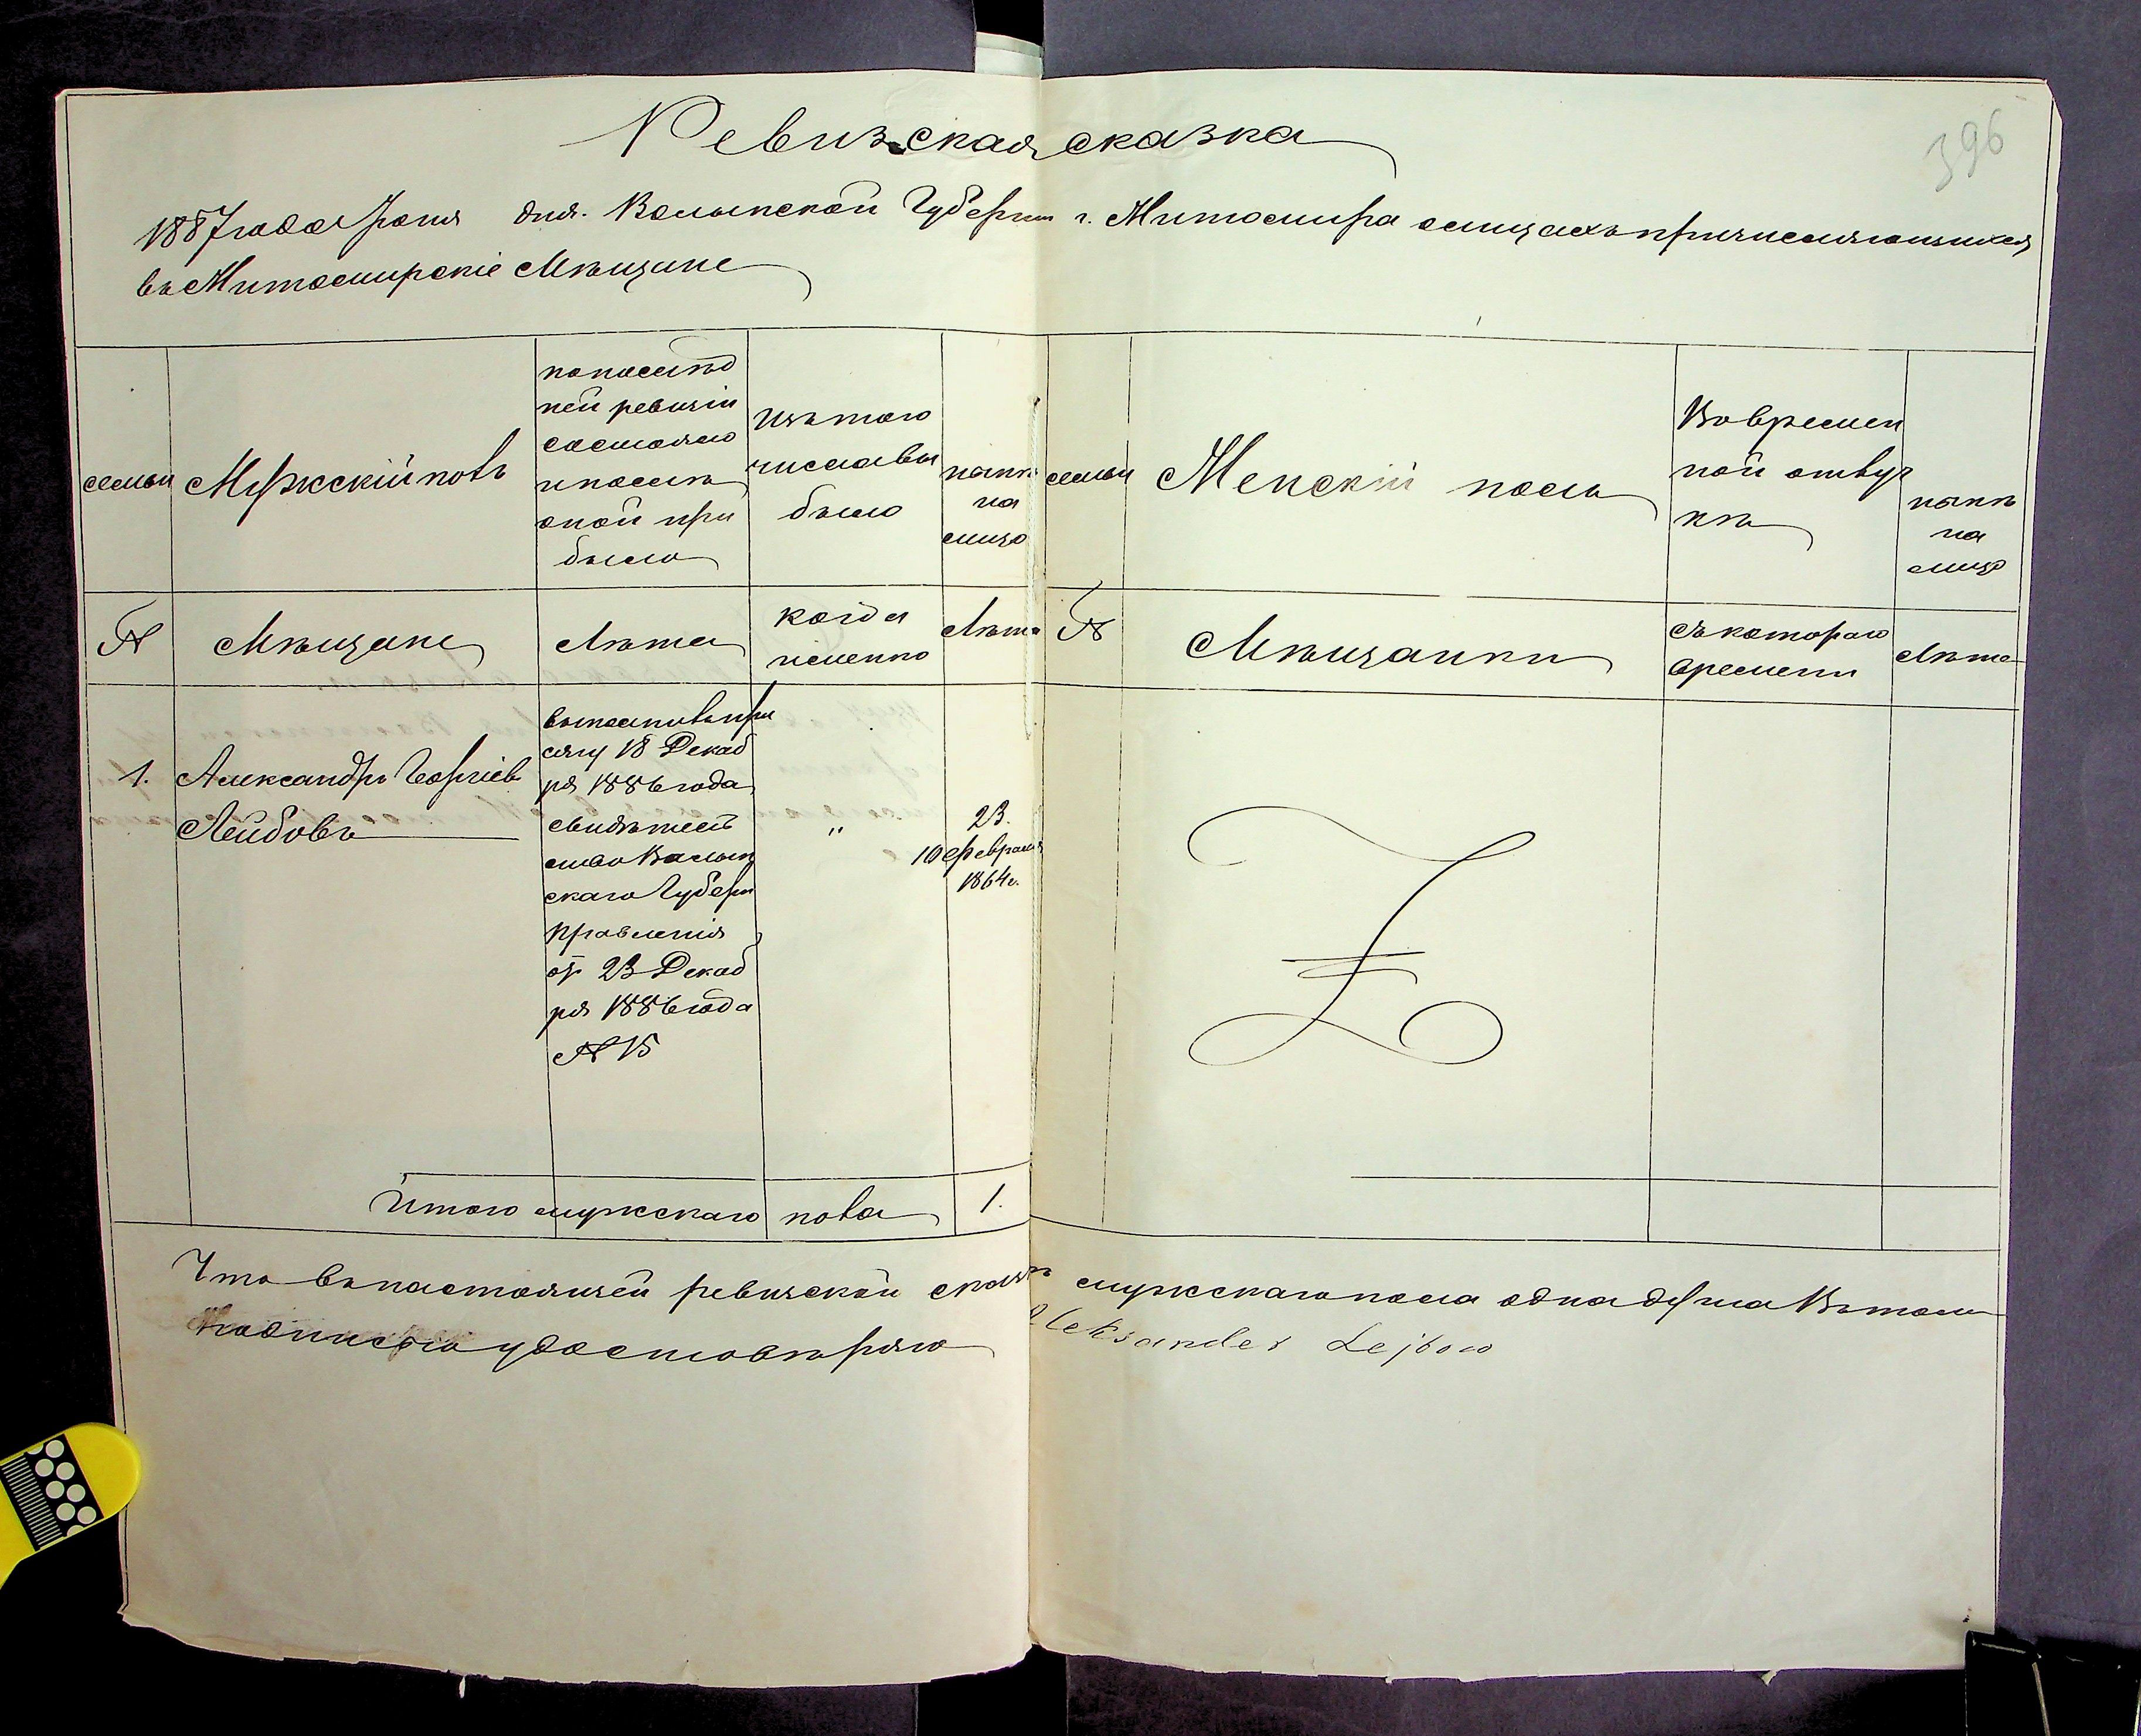 Ревизская сказка
396
1887 года Іюня дня. Волынской Губерніи г. Житомира о лицахъ причисляющихся
въ Житомирскіе Мѣщане
семьи
Мужескій полъ
по послѣд
ней ревизіи
состояло
и послѣ
оной при
было
Изъ того
числа вы
было
нынѣ
на
лицо
семьи
Женскій полъ
Во времен
ной отлуч
кѣ
нынѣ
на
лицо
№
Мѣщане
Лѣта
когда
именно
Лѣта
№
Мѣщанки
Съ котораго
времени
Лѣта
1.
Александръ Георгіевъ
Лейбовъ
выполнивъ при
сягу 18 Декаб
ря 1886 года
свидѣтель
ство Волын
скаго Губерн
Правленія
от 23 Декаб
ря 1886 года
№ 15
"
23.
10 февраля
1864 г.
Итого мужескаго пола
1.
Что въ настоящей ревизской сказкѣ мужескаго пола одна душа Въ томъ
подписью удостовѣряю Aleksander Lejbow